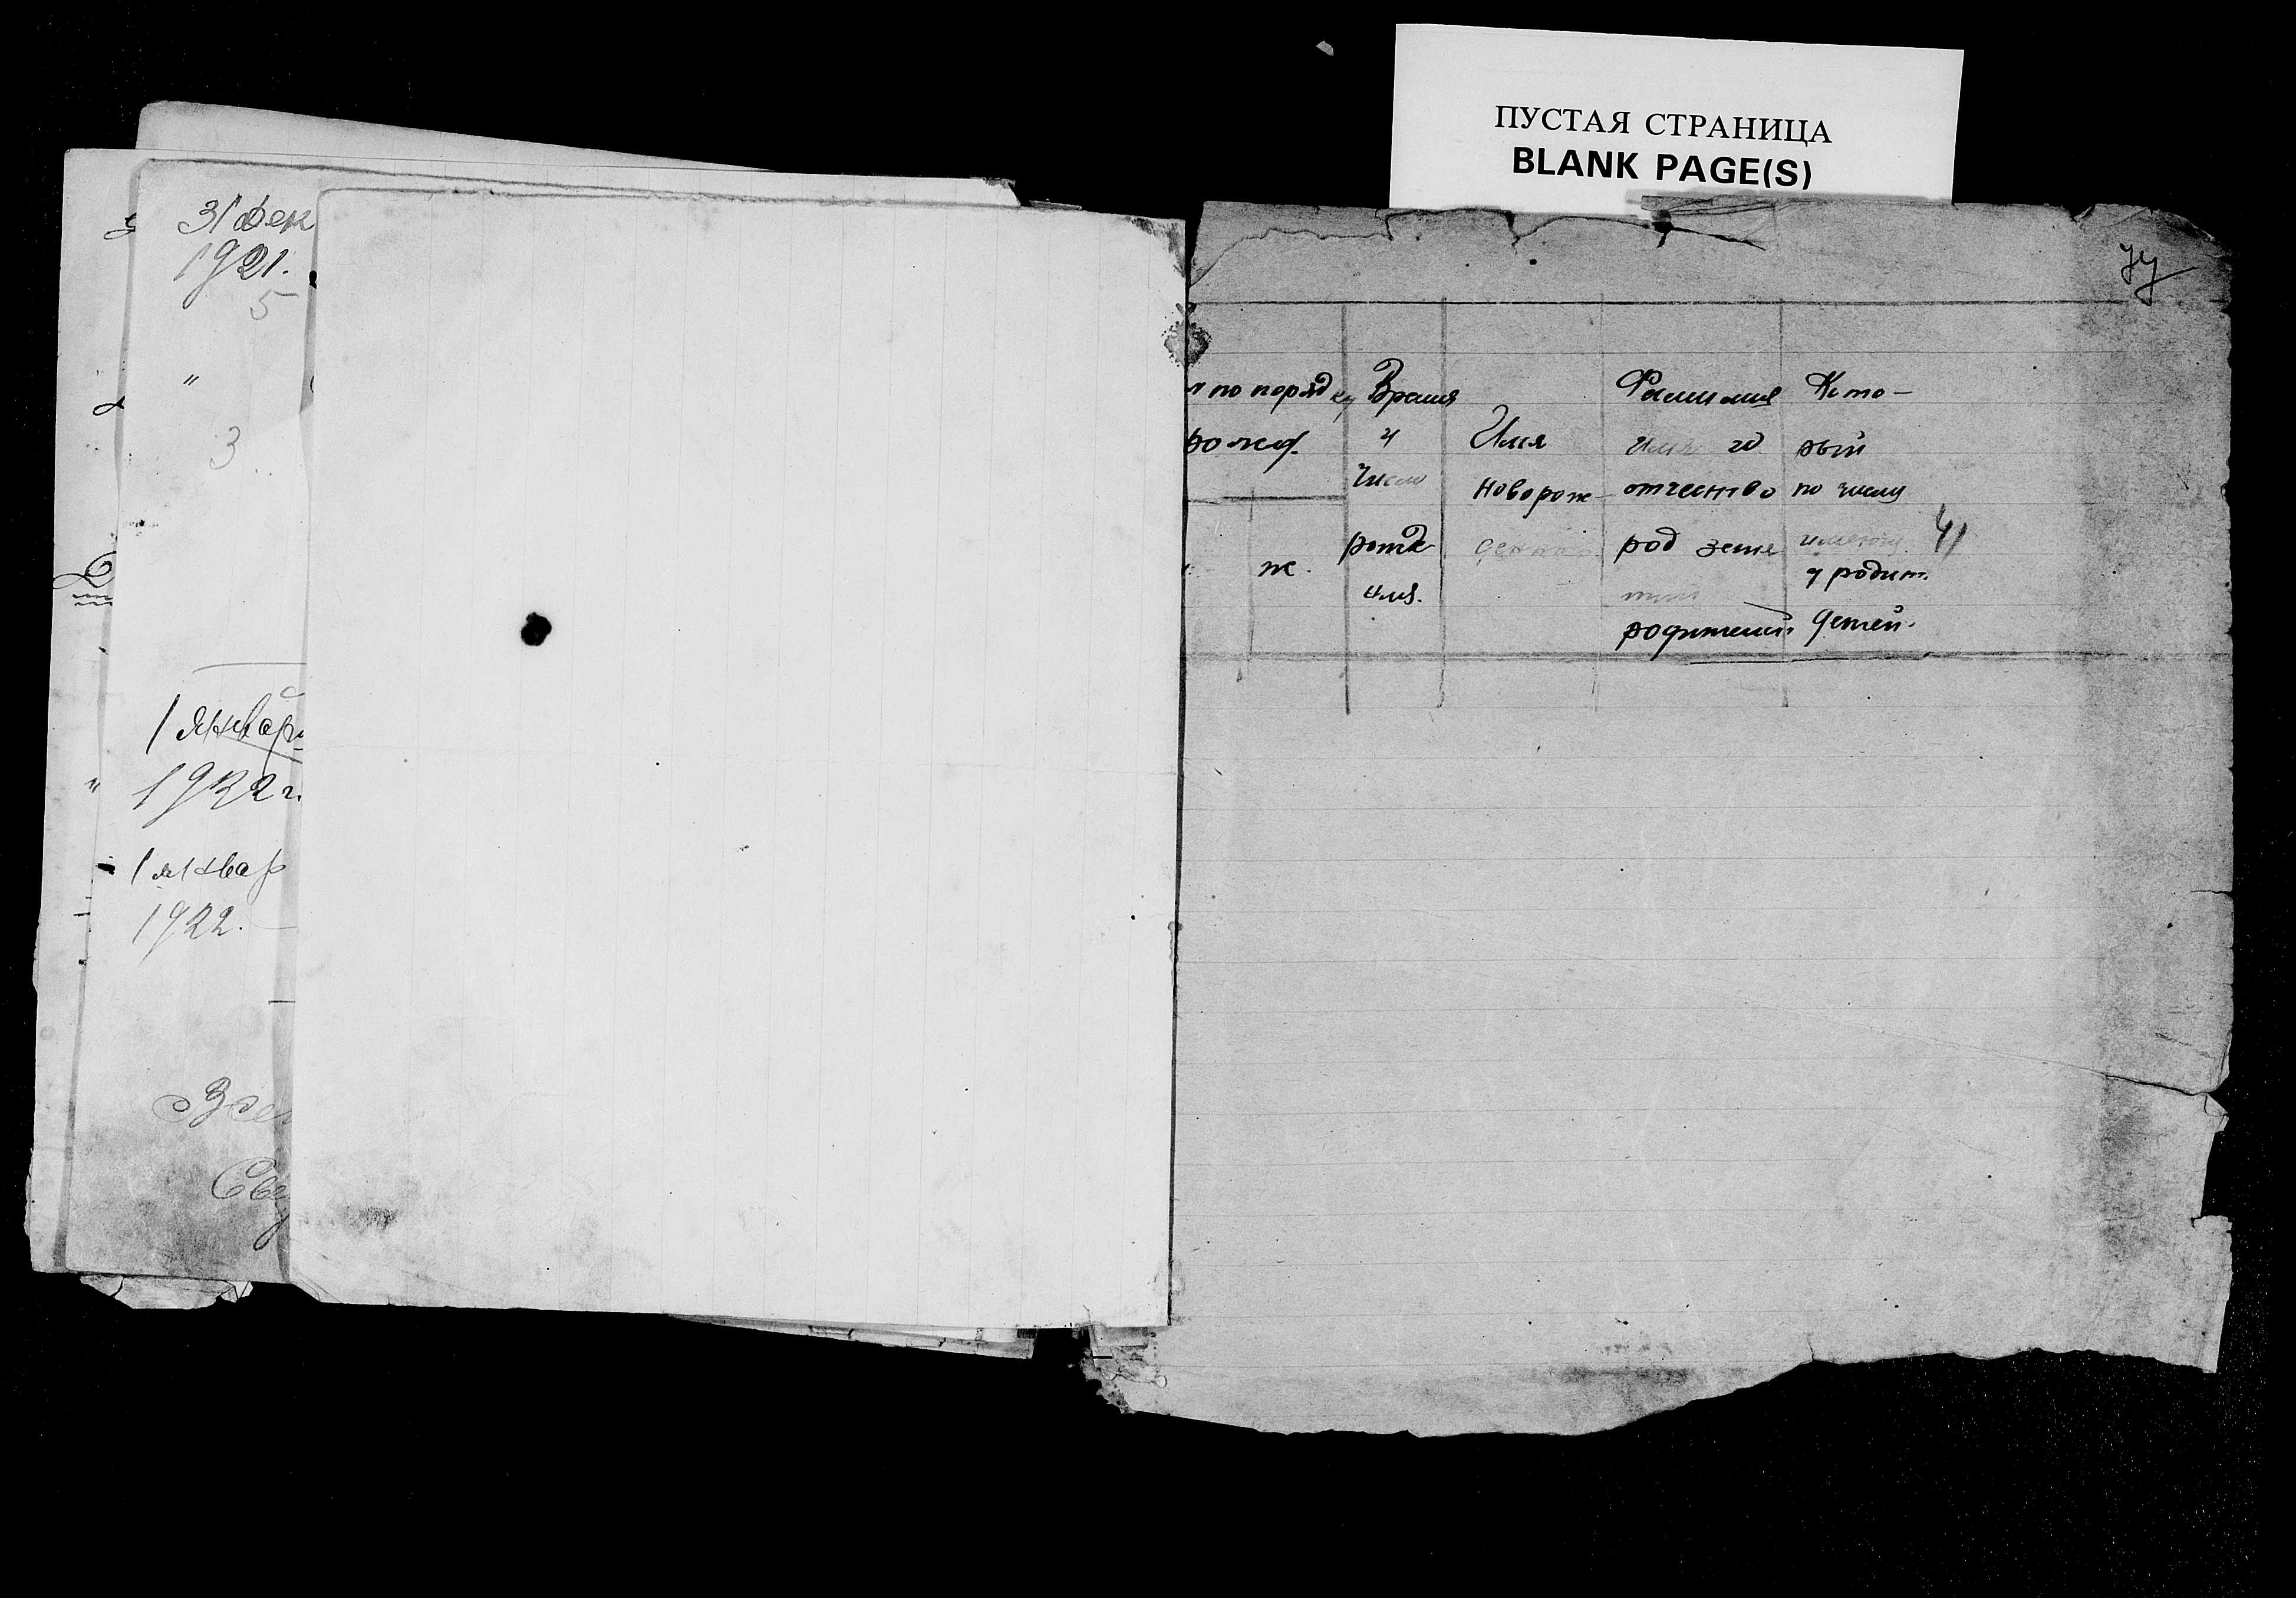 ПУСТАЯ СТРАНИЦА
BLANK PAGE(S)
31 Дек
1921.
5
"
3
1 Январ
1922 г.
1 январ
1922.
по порядку
рожд.
ж.
Время
и
число
рожде
ния.
Имя
новорож-
денного
Фамилия
имя и
отчество
род заня
тий
родителей.
Кото-
рый
по числу
у родит.
детей.
41